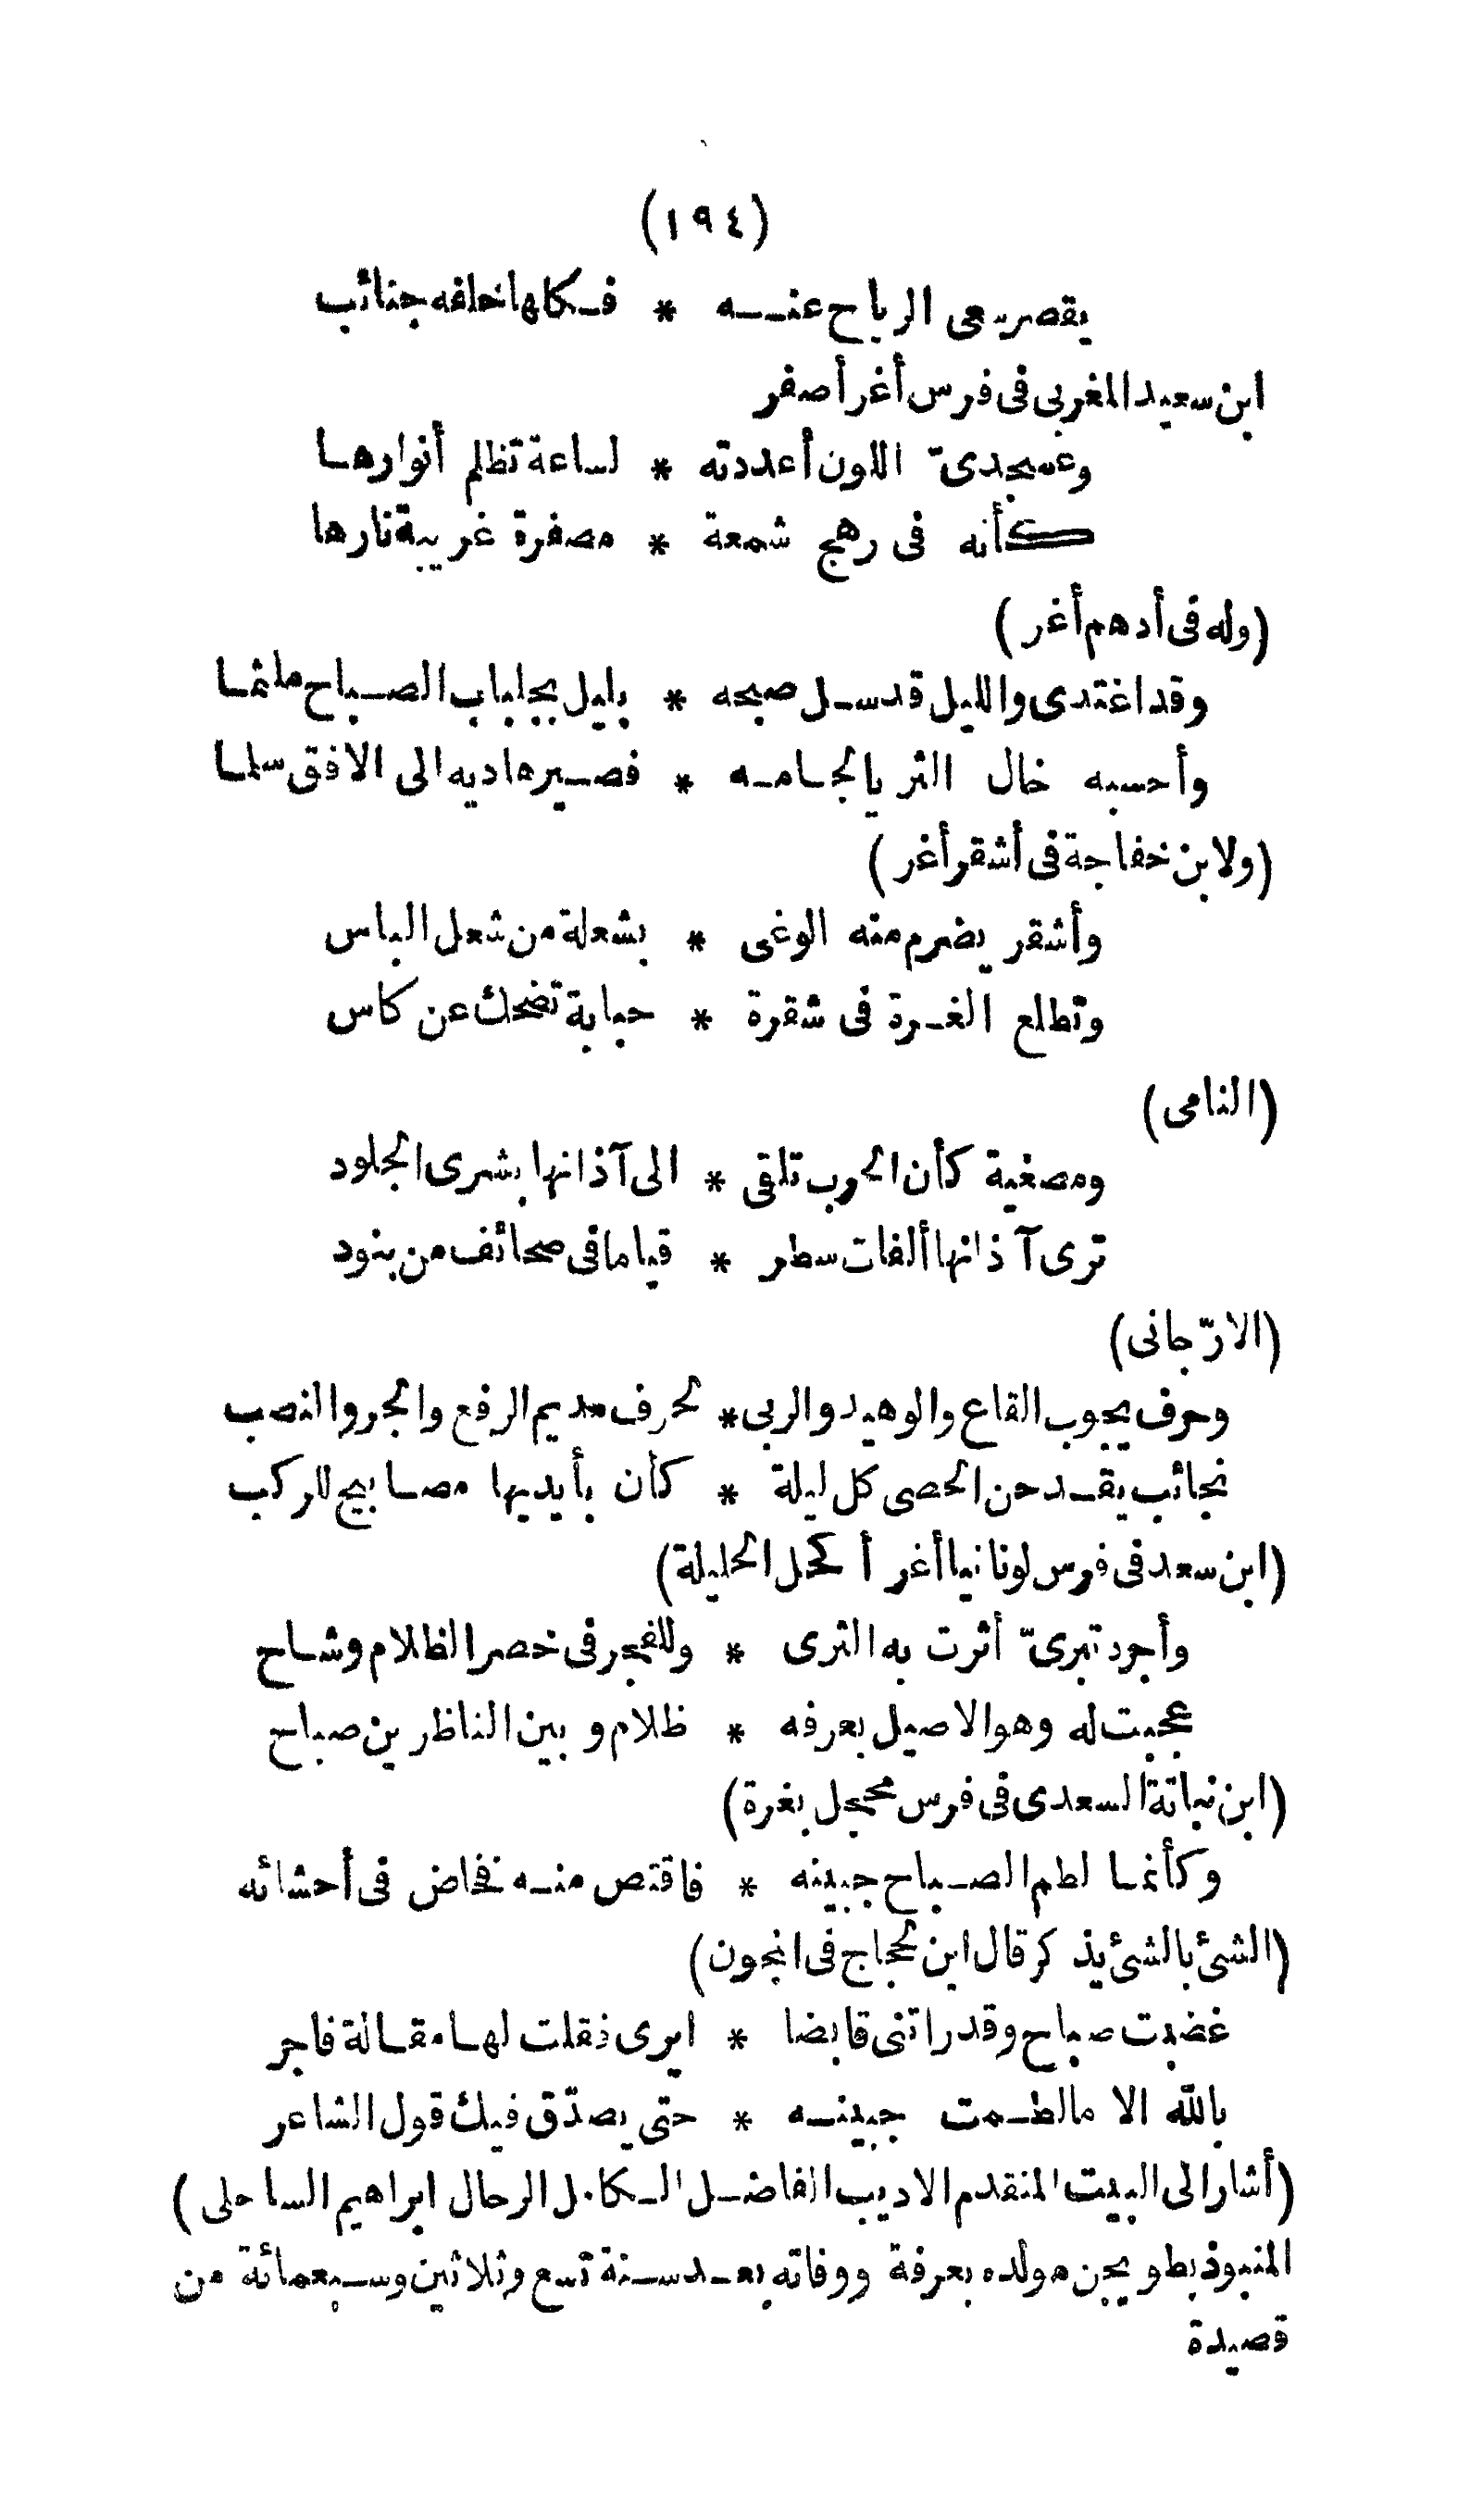 (١٩٤)
يقصر سعى الرياح عنه * فكلها خلفه جنائب
ابن سعيد المغربى فى فرس أغر أصفر
وعسجدىّ اللون أعددته * لساعة تظلم أنوارها
كأنه فى رهج شمعة * مصفرة غريبة نارها
(وله فى أدهم أغر)
وقد اغتدى والليل قد سل صبحه * بليل بجلباب الصباح ملثما
وأحسبه خال الثريا لجامه * فصير هاديه الى الافق سلما
(ولابن خفاجة فى أشقر أغر)
وأشقر يضرم منه الوغى * بشعلة من شعل الباس
وتطلع الغرة فى شقرة * حبابة تضحك عن كاس
(النامى)
ومصغية كأن الحرب تلقى * الى آذانها بشرى الجلود
ترى آذانها ألفات سطر * قياما فى صحائف من بنود
(الارّجانى)
وحرف يجوب القاع والوهيد والربى * لحرف مديم الرفع والجر والنصب
نجائب يقدحن الحصى كل ليلة * كأن بأيديها مصابيح للركب
(ابن سعد فى فرس لونانيا أغر أكحل الحليلة)
وأجرد تبرىّ أثرت به الثرى * وللفجر فى خصر الظلام وشاح
عجبت له وهو الاصيل بعرفه * ظلام وبين الناظرين صباح
(ابن نباتة السعدى فى فرس محجل بغرة)
وكأنما لطم الصباح جبينه * فاقتص منه فخاض فى أحشائه
(الشئ بالشئ يذكر قال ابن حجاج فى المجون)
غضبت صباح وقد راتنى قابضا * ايرى فقلت لها مقالة فاجر
بالله الا ما لطمت جبينه * حتى يصدّق فيك قول الشاعر
(أشار الى البيت المتقدم الاديب الفاضل الكامل الرحال ابراهيم الساحلى)
المنبوذ بطويجن مولده بعرفة ووفاته بعد سنة تسع وثلاثين وسبعمائة من
قصيدة